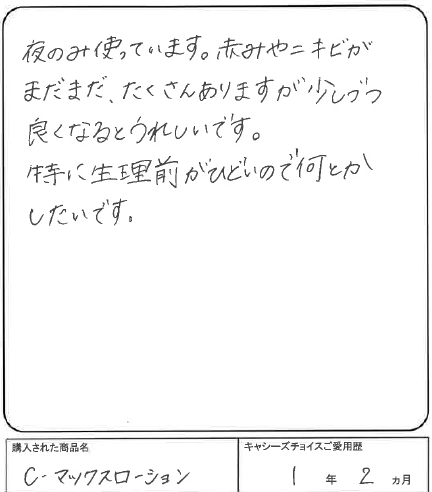 夜のみ使っています。赤みやニキビが
まだまだ、たくさんありますが少しづつ
良くなるとうれしいです。
特に生理前がひどいので何とか
したいです。
購入された商品名
C-マックスローション
キャシーズチョイスご愛用歴
1年2ヵ月